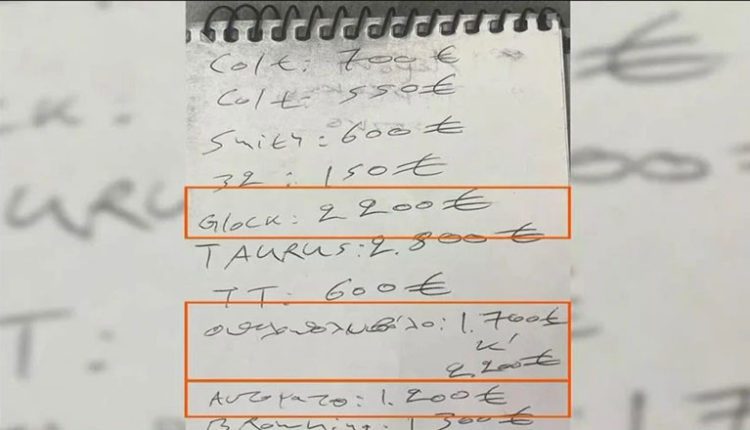 Colt: 700 €
Colt: 550€
Smith: 600€
32: 150€
Glock: 2200€
TAURUS: 2.800€
TT: 600€
1.700€
κ'
2.200€
Αυτοματο: 1.200€
Browning: 1.300€